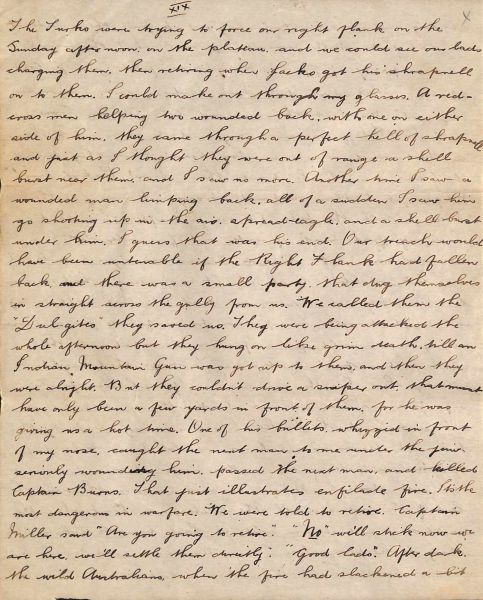 XIX
x
The Turks were trying to force our right flank on the
Sunday afternoon on the plateau, and we could see our lads
charging them, then retiring when Jacko got his shrapnell
on to them. I could make out through my glasses. A red-
cross men helping two wounded back, with one on either
side of him, they came through a perfect hell of shrapnell
and just as I thought they were out of range a shell
burst near them, and I saw no more. Another time I saw a
wounded man limping back, all of a sudden I saw him
go shooting up in the air, spread-eagle, and a shell burst
under him. I guess that was his end. Our trench would
have been untenable if the Right Flank had fallen
back, and there was a small party, that dug themselves
in straight across the gully from us. We called them the
they saved us. They were being attacked the
whole afternoon but they hung on like grim death, till an
Indian, Mountain Gun was got up to them, and then they
were alright. But they couldn't drive a sniper out, that must
have only been a few yards in front of them, for he was
giving us a hot time. One of his bullets, whizzed in front
of my nose, caught the next man to me under the jaw
seriously wounding him, passed the next man, and killed
Captain Burns. That just illustrates enfilade fire. Its the
most dangerous in warfare. We were told to retire. Captain
Miller said "Are you going to retire". "No" we'll stick now we
are here, we'll settle them directly". "Good lads". After dark,
the wild Australians, when the fire had slackened a bit